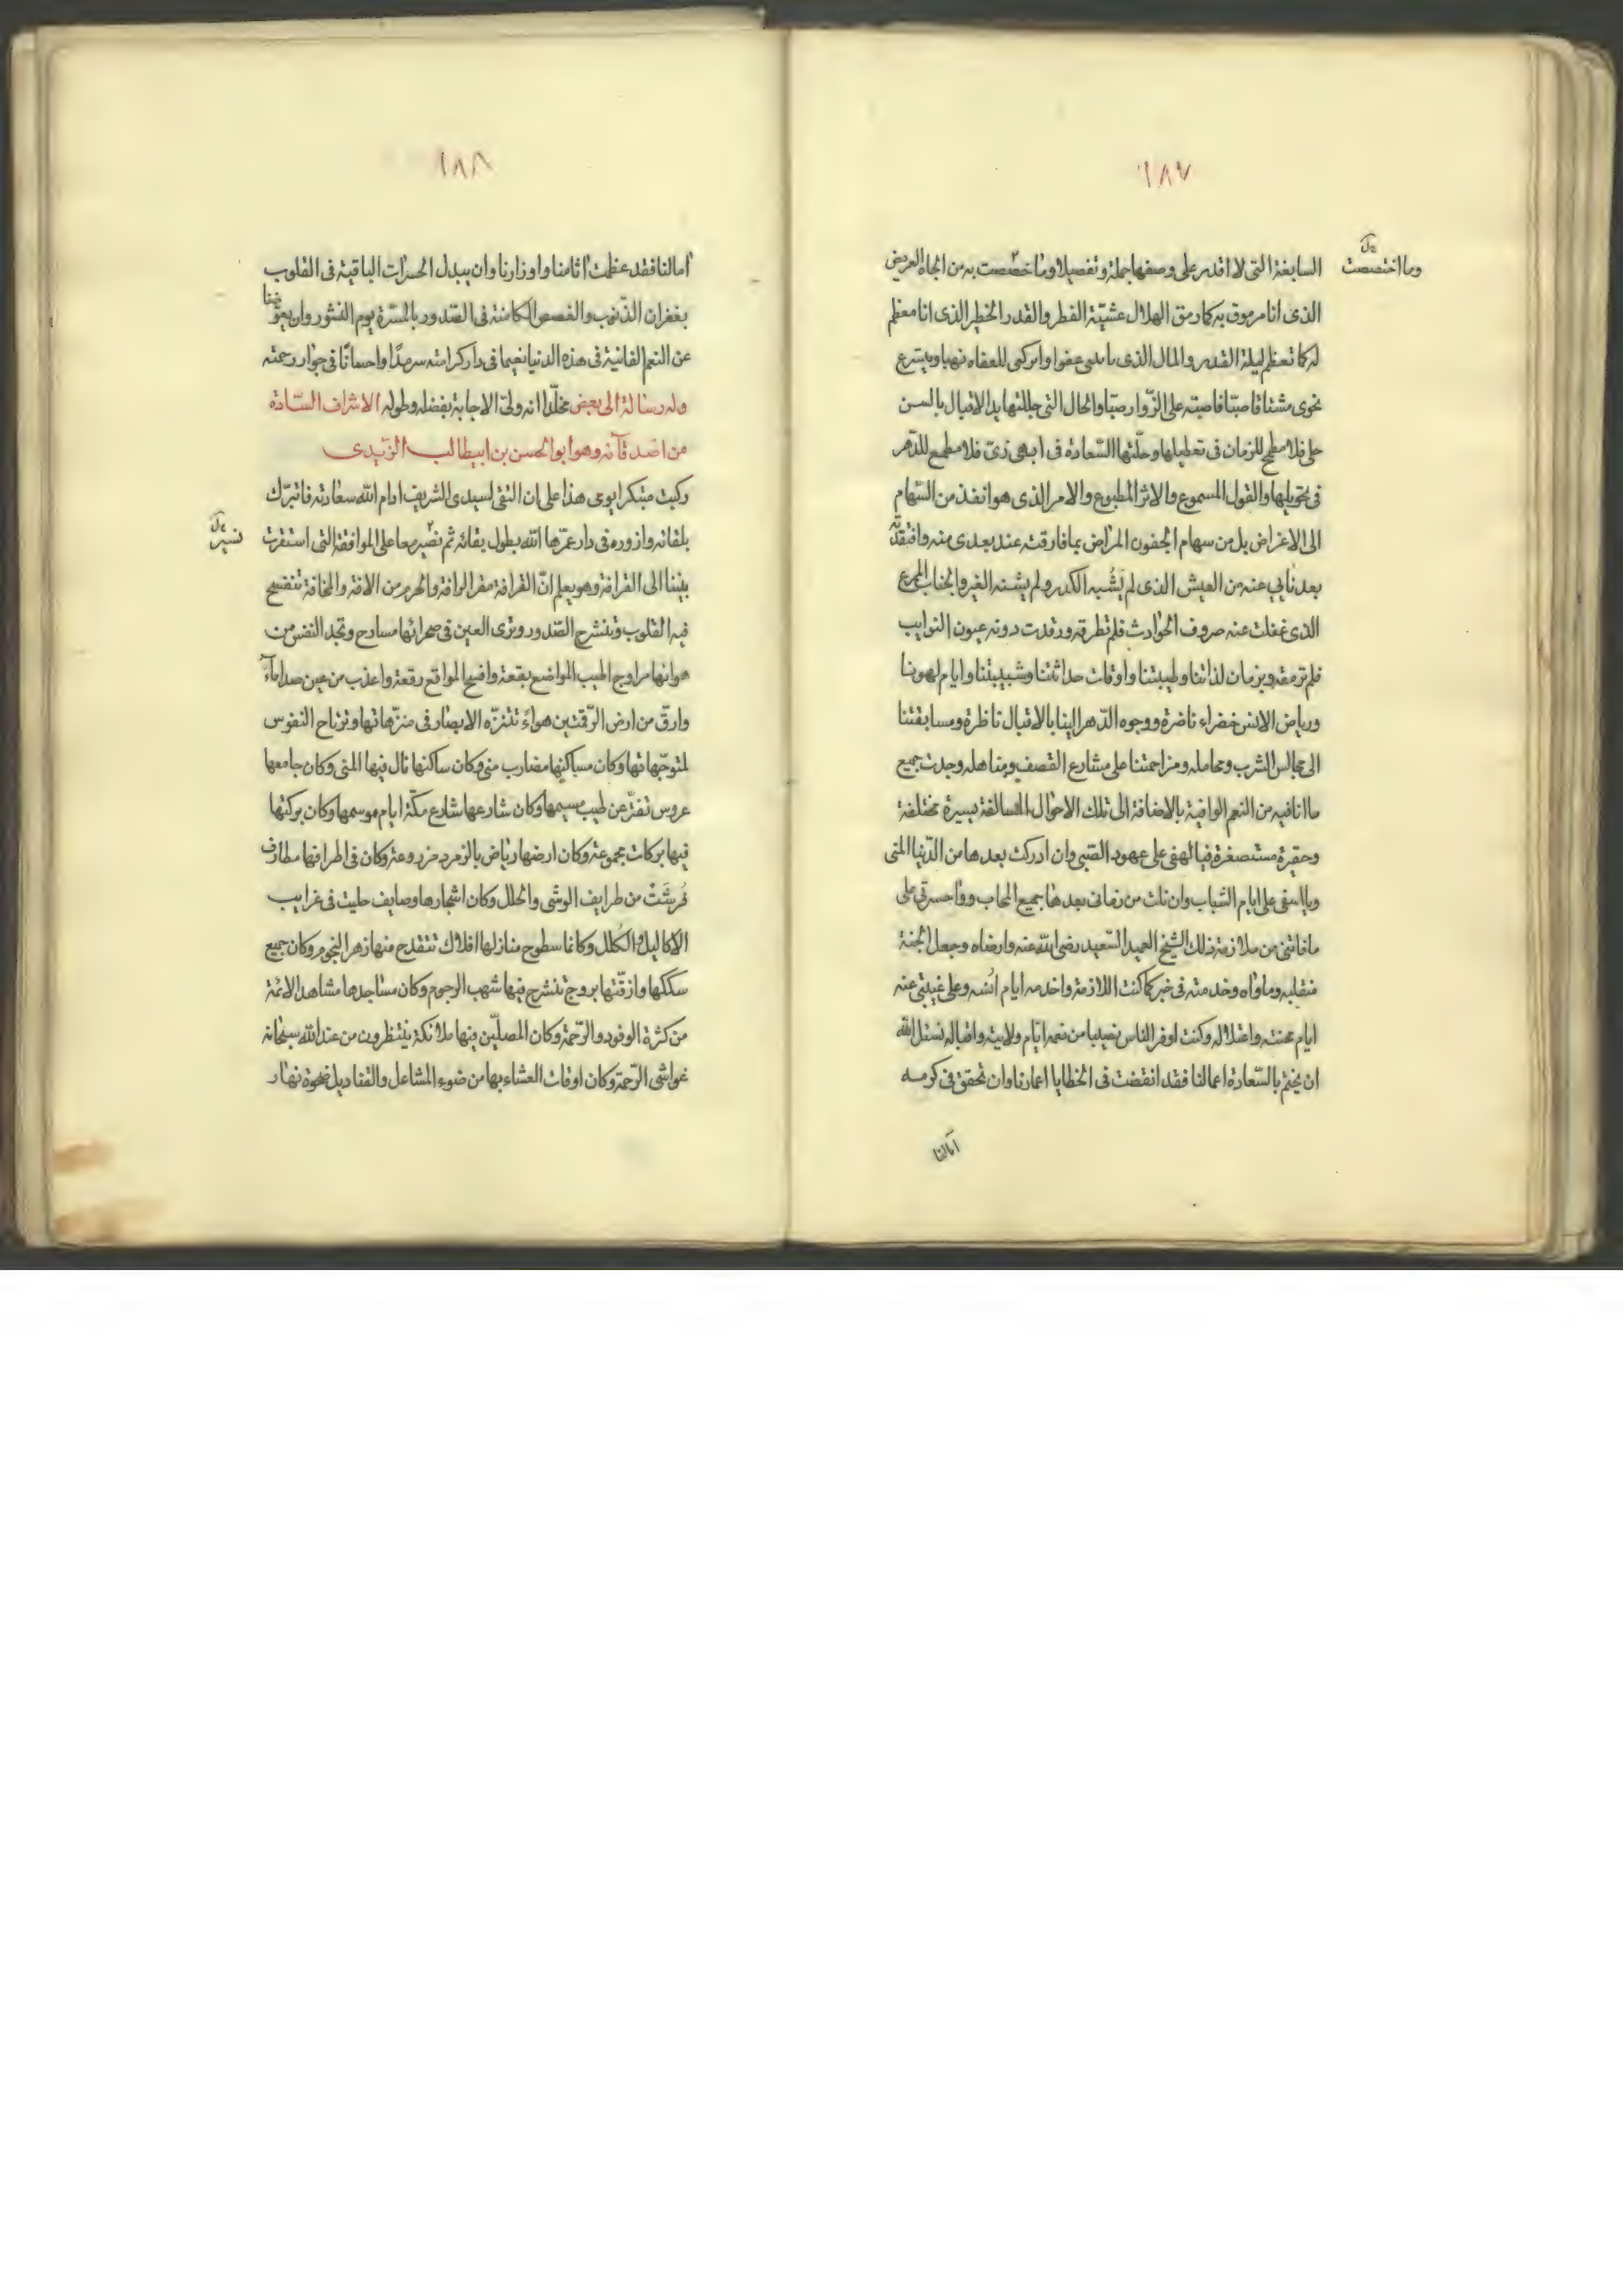 ١٨٧
وما اختصصت
السابغة التي لا اقدر على وصفها جملة وتفصيلا وما خصصت به من الجاه العريض
الذى انا مرموق به كما رمق الهلال عشيّة الفطر والقدر الخطير الذى انا معظم
له كما تعظم ليلة القدر والمال الذى عفوا للعفاه نهبا ويسرع
نحوى مشتاقا صبّا فاصبّه على الزّوار صبّا والحال التى جللتها يد الاقبال بالسن
حلى فلا مطمح للزمان فى تعطيلها وحلّتها السّعادة فى ابهى زىّ فلا مطمع للدّهر
فى تحويلها والقول المسموع والاثر المطبوع والامر الذى هو انفذ من السّهام
الى الاغراض بل من سهام الجفون المراض بما فارقت عند بعدى منه وافتقدته
بعد نأيي عنه من العيش الذى لم يَشُبه الكدر ولم يشنه الغير والجناب الممرع
الذى غفلت عنه صروف الحوادث فلم تطرقه ورقدت دونه عيون النوايب
فلم ترمقه وبزمان لذاتنا وطيبتنا واوقات حداثتنا وشبيبتنا وايام لهونا
ورياض الانس خضراء ناضرة ووجوه الدّهر الينا بالاقبال ناظرة ومسابقتنا
الى مجالس الشرب ومحامله ومزاحمتنا على مشارع القصف ومناهله وجدت جميع
ما انا فيه من النعم الوافية بالاضافة الى تلك الاحوال السالفة يسيرة مختلفة
وحقيرة مستصغرة فيا لهفى على عهود الصّبى وان ادركت بعدها من الدّنيا المنى
ويا اسفى على ايام الشباب وان نلت من زمانى بعدها جميع المحاب ووا حسرتى على
ما فاتنى من ملازمة ذلك الشيخ العميد السّعيد رضى الله عنه وارضاه وجعل الجنة
منقلبه وماواه وخدمته فى خير كما كنت الازمه واخدمه ايام انُسه وعلى غيبتى عنه
ايام محنته واعتلاله وكنت اوفر الناس نصيبا من نعمه ايّام ولايته واقباله نسئل الله
ان يختم بالسّعادة اعمالنا فقد انقضت فى الخطايا اعمارنا وان تحقق فى كرمه
آمالنا
١٨٨
آمالنا فقد عظمت اثامنا واوزارنا وان يبدل الحسرات الباقية فى القلوب
بغفران الذّنوب والغصص الكامنة فى الصّدور بالمسّرة يوم النشور وان يعوّضنا
عن النعم الفانية فى هذه الدنيا نعيما فى دار كرامته سرمدًا واحسانًا فى جوار رحمته
وله رسالة الى بعض مخلّدا انه ولىّ الاجابة بفضله وطوله الاشراف السّادة
من اصدقآئه وهو ابو الحسن بن ابيطالب الزّيدى
ركبت مبتكرا يومى هذا على ان التقى لسيدى الشريف ادام الله سعادته فاتبرّك
بلقائه وازوره فى دار عمّرها الله بطول بقائه ثم نصير معا على الموافقة التى استقرت
نسير
بيننا الى القرافة وهو يعلم انّ القرافة مقر الرافة والحرم من الافة والمخافة تنفسح
فيه القلوب وتنشرح الصّدور وترى العين فى صحرائها مسارح وتجد النفس من
هوائها مراوح اطيب المواضع بقعة وافيح المواقع رقعة واعذب من عين صدا مآءً
وارقّ من ارض الرّقتين هواءً تتنزّه الابصار فى منتزّهاتها وترتاح النفوس
لمتوجّهاتها وكان مساكنها مضارب منى وكان ساكنها نال فيها المنى وكان جامعها
عروس تفترّ عن طيب مبسمها وكان شارعها شارع مكّة ايام موسمها وكان بركتها
فيها بركات مجموعة وكان ارضها رياض بالزمرد مزروعة وكان فى اطرافها مطارف
فُرِشَتْ من طرايف الوشى والحلل وكان اشجارها وصايف حليت فى غرايب
الاكاليل والكلل وكانما سطوح منازلها افلاك تنقدح منها زهر النجوم وكان جميع
سككها وازقّتها بروج تنشرح فيها شهب الرجوم وكان مساجدها مشاهد الائمة
من كثرة الوفود والرّحمة وكان المصلّين فيها ملائكة ينتظرون من عند الله سبحانه
غواشى الرّحمة وكان اوقات العشاء بها من ضوء المشاعل والقناديل ضحوة نهار